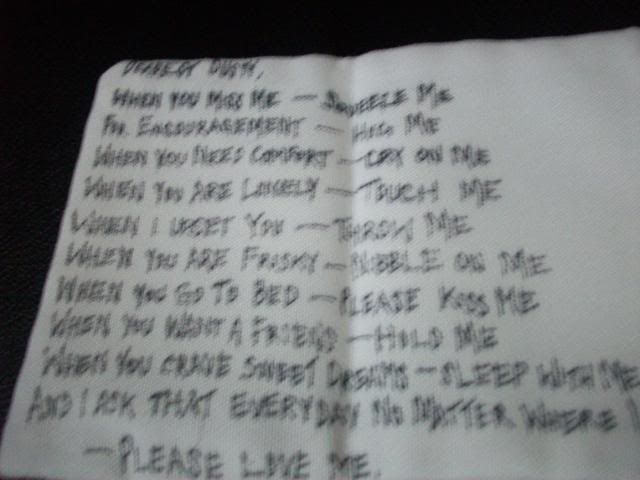 DEAREST
WHEN YOU MISS ME — SQUEEZE ME
FOR ENCOURAGEMENT — HUG ME
WHEN YOU NEED COMFORT — CRY ON ME
WHEN YOU ARE LONELY — TOUCH ME
WHEN I UPSET YOU — THROW ME
WHEN YOU ARE FRISKY — NIBBLE ON ME
WHEN YOU GO TO BED — PLEASE KISS ME
WHEN YOU WANT A FRIEND — HOLD ME
WHEN YOU CRAVE SWEET DREAMS — SLEEP WITH ME
AND I ASK THAT EVERYDAY NO MATTER WHERE I
— PLEASE LOVE ME.